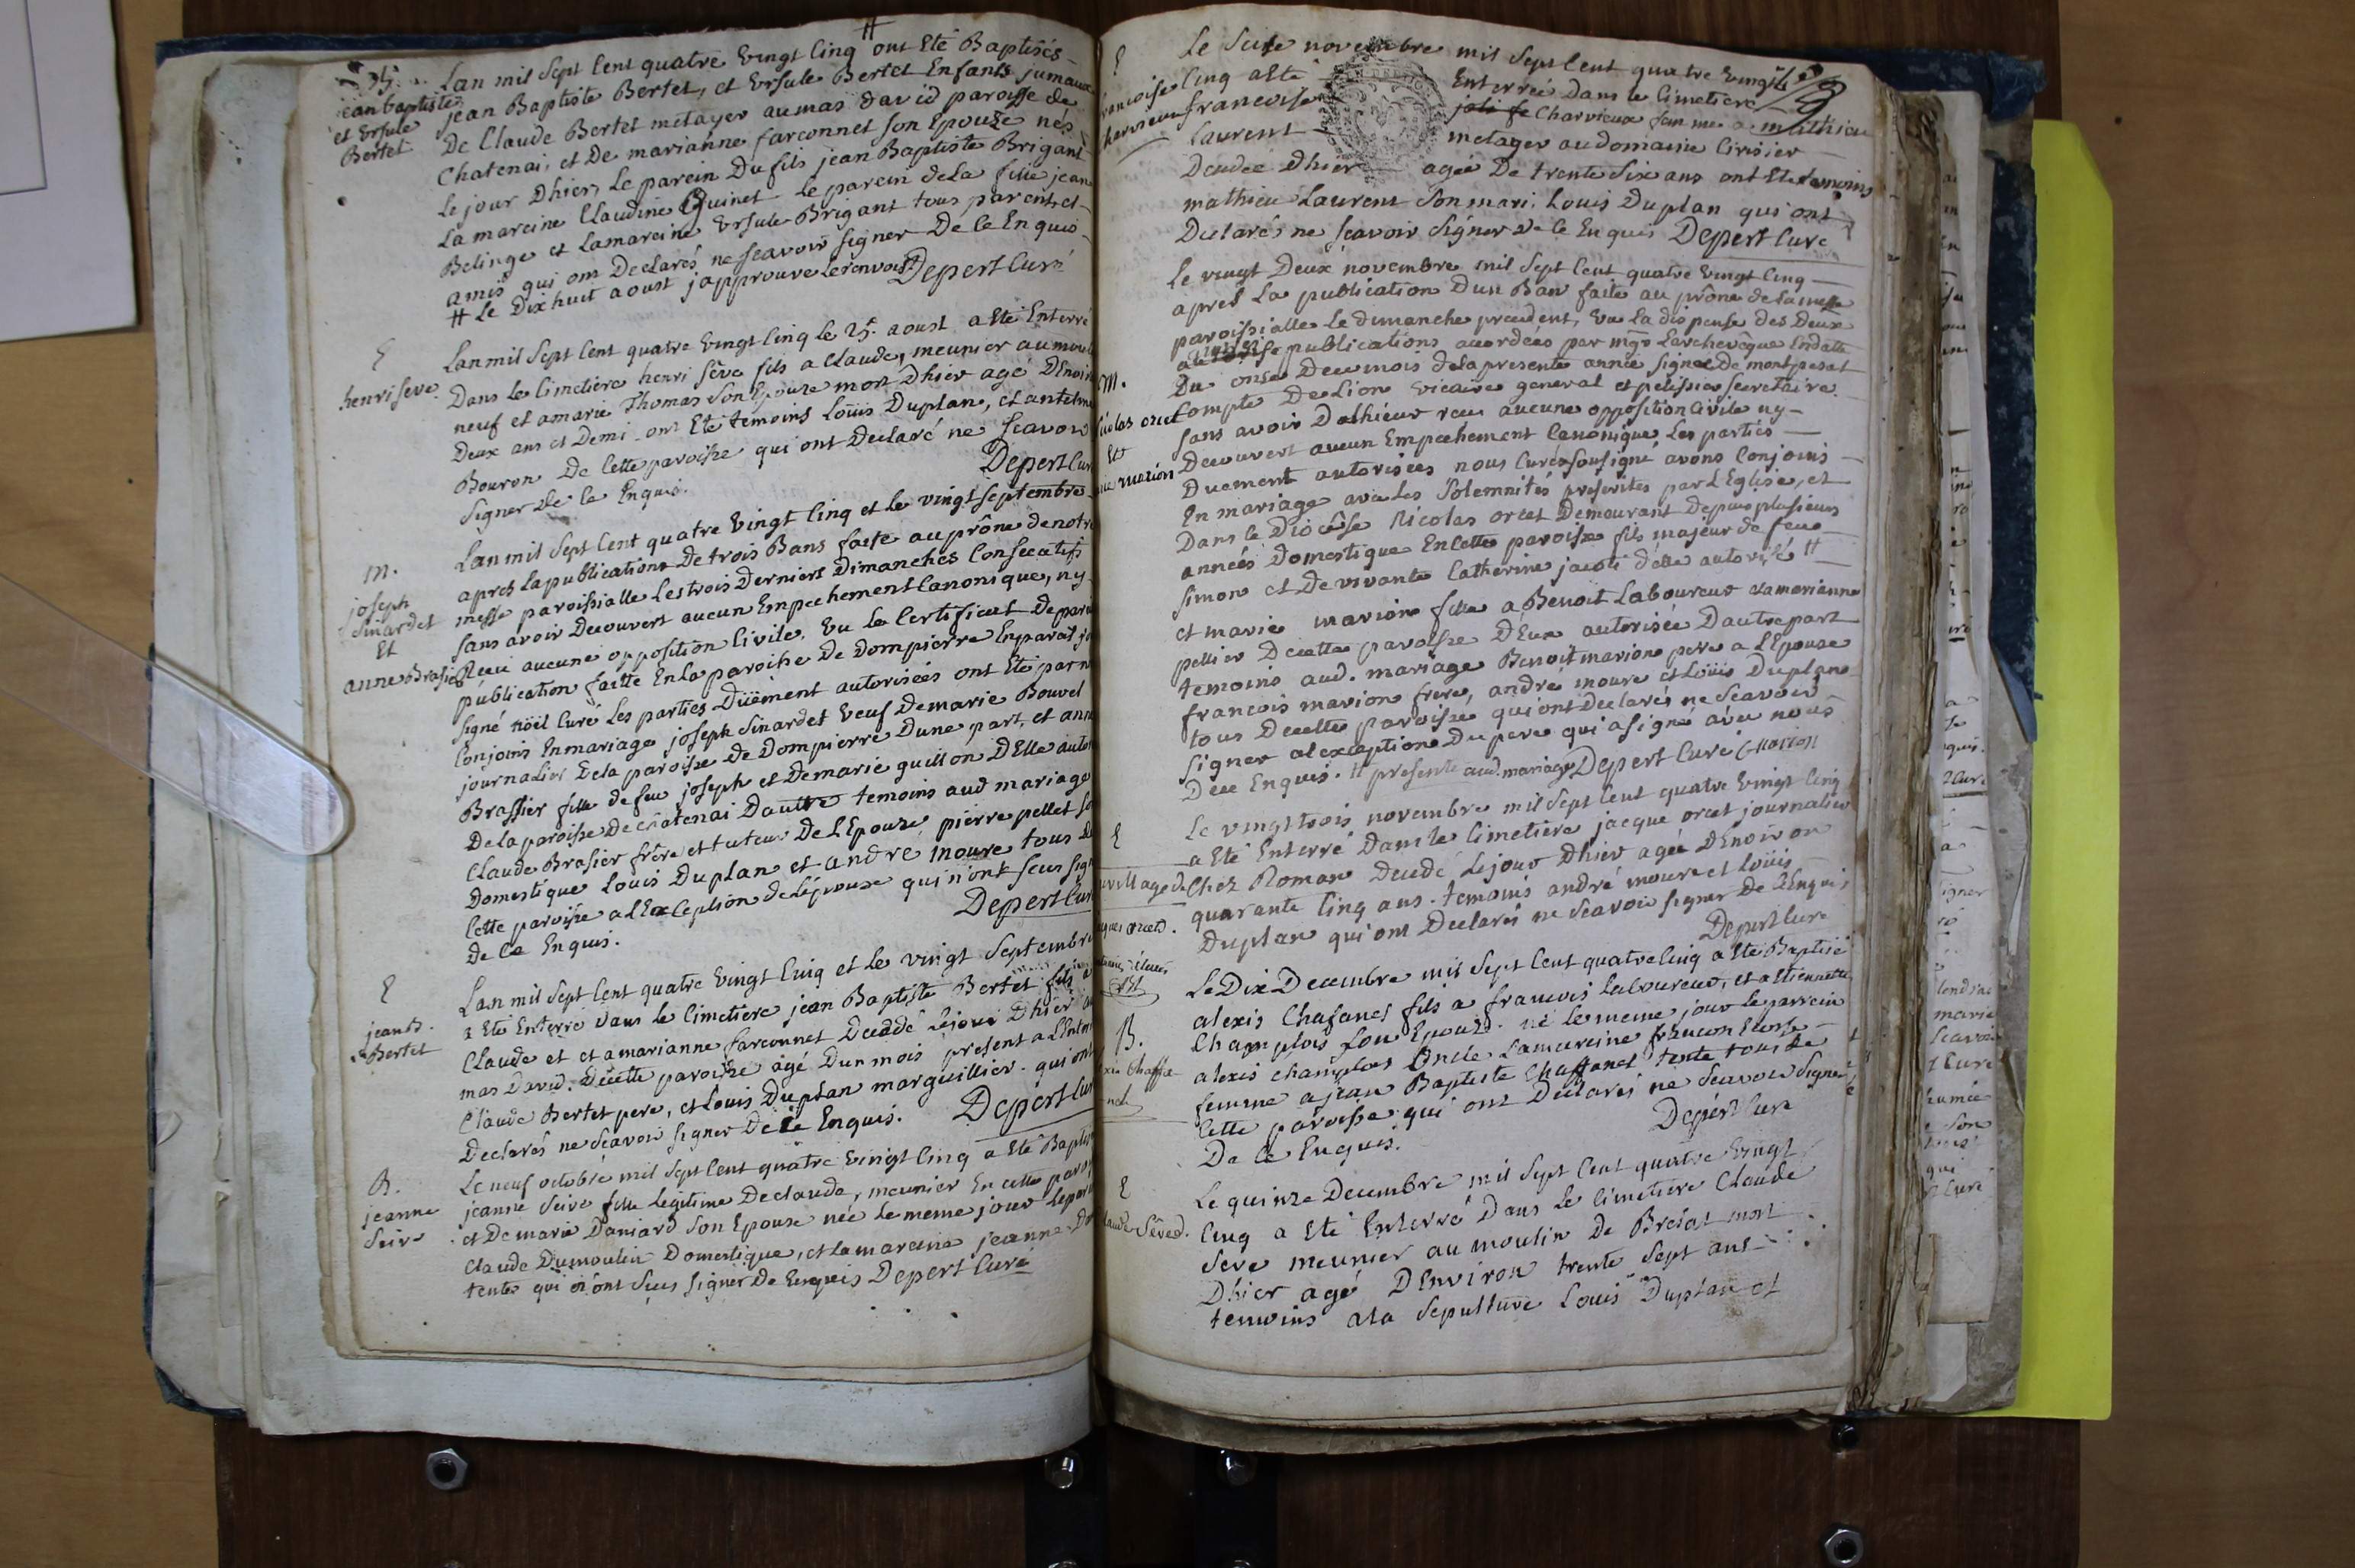 #
jean baptiste
et Ersule
Bertet
Lan mil sept cent quatre vingt cinq ont eté Baptisés
jean Baptiste Bertet, et Ersule Bertet Enfants jumaux
De Claude Bertet metayer au mas david paroisse de
Chatenai, et De marianne farconnet son Epouze nés
le jour Dhier, Le parein Du fils jean Baptiste Brigant
La mareine Claudine Guinet Le parein dela fille jean
Belinge et Lamareine Ersule Brigant tous parents et
amis qui ont Declarés ne scavoir signer De ce Enquis
# Le Dix huit aoust japprouve le renvois Depert Curé
E
henri seve.
Lan mil sept cent quatre vingt cinq le 25. aoust a eté Enterré
Dans le Cimetiere henri sève fils a Claude, meunier au moulin
neuf et amarie Thomas son Epouze mort Dhier agé DEnviron
Deux ans et Demi ont Eté temoins Loüis Duplan, et antelme
Bouron De Cette paroisse qui ont Declaré ne scavoir
signer de ce Enquis.
Depert Curé
m.
joseph
sinardet
Et
anne Brasier
Lan mil sept cent quatre vingt cinq et le vingt septembre
apres la publication De trois Bans faite au prône de notre
messe paroissialle Les trois Derniers Dimanches Consecutifs
sans avoir Decouvert aucun Empechement Canonique, ny
Receu aucune opposition Civile. Vu le Certificat De pareille
publication faitte En la paroisse De Dompierre
signé nöel Curé Les parties Düement autorisées ont Eté par nous
Conjoins En mariage joseph sinardet veuf De marie Bouvet
journalier De la paroisse de Dompierre Dune part, et anne
Brassier fille de feu joseph et De marie guillon DElle autorisée
De la paroisse De chatenai Dautre temoins aud mariage
Claude Brasier frère et tuteur De LEpouze pierre pellet son
Domestique Louis Duplan et andré moure tous De
Cette paroisse a lException de lépouse qui n'ont sceus signer
de ce Enquis.
Depert Curé
E
jean B.
Bertet
Lan mil sept cent quatre vingt cinq et le vingt septembre
a Eté Enterré dans le Cimetiere jean Baptiste Bertet fils a
Claude et et a marianne farconnet Decedé le jour Dhier au
mas David. Decette paroisse agé Dun mois present a
Claude Bertet pere, et Louis Duplan marguillier. qui ont
Declarés ne scavoir signer De ce Enquis.
Depert Curé
B.
jeanne
Seive
Le neuf octobre mil sept cent quatre vingt cinq a Eté Baptisée
jeanne Seive fille Legitime De claude, meunier En cette paroisse
et De marie Daniard son Epouse née Le meme jour Le parein
Claude Dumoulin Domestique, et la mareine jeanne
tente qui n'ont sceus signer De Enquis Depert Curé
E
francoise
charvieux
Le seize novembre mil sept cent quatre vingt
Cinq a Eté Enterrée Dans le Cimetiere
francoise Charvieux femme a mathieu
Laurent metayer au domaine
Decedée Dhier agée De trente six ans ont Eté temoins
mathieu Laurent son mari, Louis Duplan qui ont
Declarés ne scavoir signer de ce Enquis Depert Curé
m.
nicolas orcet
Et
marie marion
Le vingt Deux novembre mil sept cent quatre vingt cinq
apres La publication Dun Ban faite au prône de la messe
paroissialle Le dimanche precedent, Vu La dispense des Deux
publications accordées par mgr Larchevêque En datte
Du onse Decemois dela presente année signée De montpesat
Compte De Lion vicaire general et pelissier secretaire.
sans avoir Dailhieurs receu aucune opposition Civile ny
Decouvert aucun Empechement Canonique, Les parties
Duement autorisées nous Curé sousigné avons Conjoins
En mariage avec Les solemnités prescrites par LEglise, et
Dans le Diocèse nicolas orcet Demeurant Depuis plusieurs
années Domestique En cette paroisse fils majeur de feue
simon et De vivante Catherine delle autorisé #
et marie marion fille a Benoit Laboureur et a marianne
pellier Decette paroisse DEux autorisée Dautre part
temoins aud. mariage Benoit marion pere a LEpouse
francois marion frere, andré moure et Loüis Duplan
tous Decette paroisse qui ont Declarés ne scavoir
signer alexception Du pere qui a signé avec nous
Dece Enquis. # presente aud. mariage Depert Curé Marion
E
jacques orcet.
Le vingt trois novembre mil sept cent quatre vingt cinq
a Eté Enterré Dans le Cimetiere jacque orcet journalier
au village de Chez Roman Decedé Le jour Dhier agé DEnviron
quarante Cinq ans. temoins andré moure et Loüis
Duplan qui ont Declarés ne scavoir signer De ce Enquis
Depert Curé
B.
Chaffa
nel
Le Dix Decembre mil sept cent quatre cinq a Eté Baptisé
alexis Chafanel fils a francois Laboureur, et a Etiennette
Champlois son Epouze. né le meme jour le parrein
alexis champlois oncle Lamareine
femme a jean Baptiste Chaffanel tente tous De
Cette paroisse qui ont Declarés ne scavoir signer
De ce Enquis.
Depert Curé
E
Claude Sève.
Le quinze Decembre mil sept cent quatre vingt
Cinq a Eté Enterré Dans Le Cimetiere Claude
Seve meunier au moulin De Bresat mort
Dhier agé DEnviron trente sept ans
temoins a la sepulture Louis Duplan et